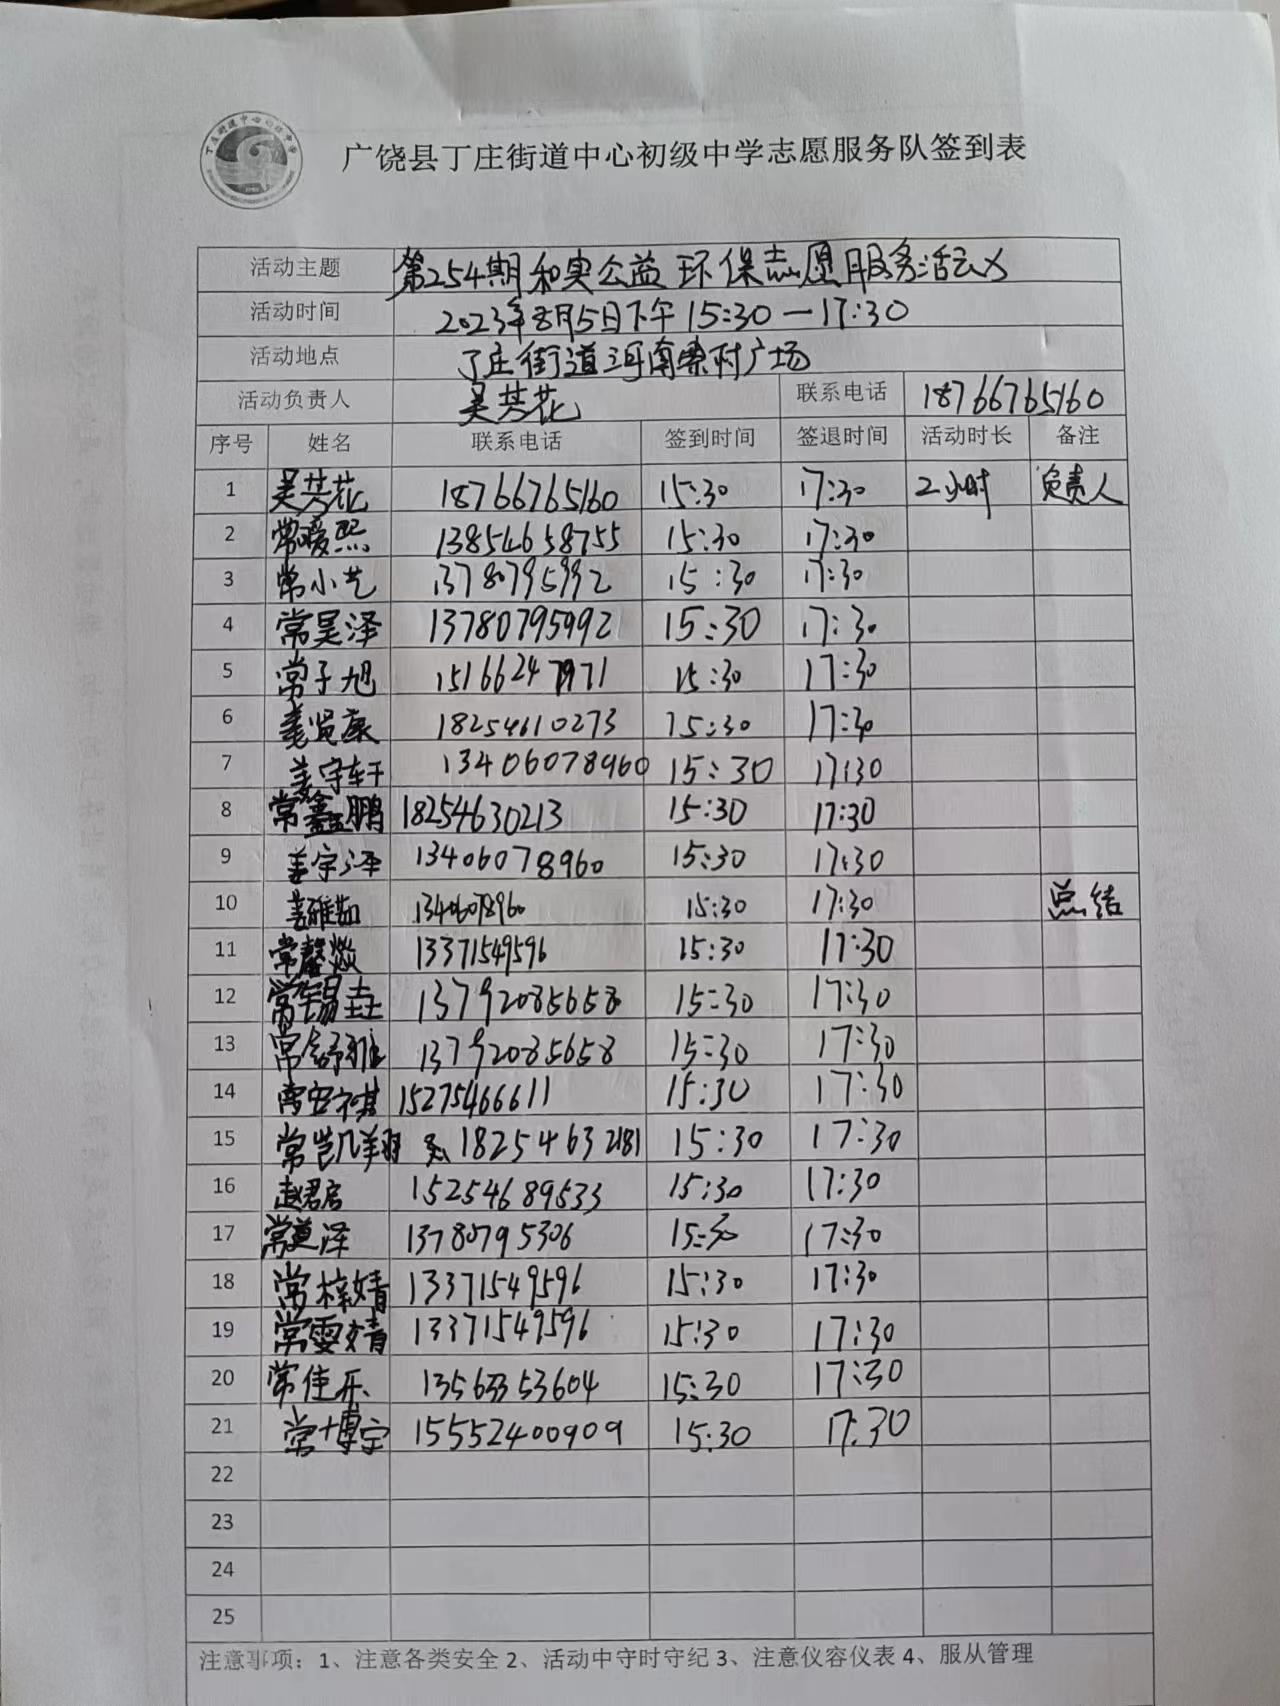 丁庄街道中心初级中学
广饶县丁庄街道中心初级中学志愿服务队签到表
活动主题 第254期和实公益环保志愿服务活动
活动时间 2023年8月5日下午15:30—17:30
活动地点 丁庄街道河南寨村广场
活动负责人 吴芸花 联系电话 18766765160
序号 姓名 联系电话 签到时间 签退时间 活动时长 备注
1 吴芸花 18766765160 15:30 17:30 2小时 负责人
2 常暖熙 13854658755 15:30 17:30
3 常小艺 13780795992 15:30 17:30
4 常昊泽 13780795992 15:30 17:30
5 常子旭 15166247971 15:30 17:30
6 姜贤康 18254610273 15:30 17:30
7 姜宇轩 13406078960 15:30 17:30
8 常鑫鹏 18254630213 15:30 17:30
9 姜宇泽 13406078960 15:30 17:30
10 姜雅茹 13406078960 15:30 17:30 总结
11 常馨焱 13371549596 15:30 17:30
12 常锡垚 13792085658 15:30 17:30
13 常舒雅 13792085658 15:30 17:30
14 常安祺 15275466611 15:30 17:30
15 常凯翔 18254632181 15:30 17:30
16 赵君启 15254689533 15:30 17:30
17 常泽 13780795306 15:30 17:30
18 常梓婧 13371549596 15:30 17:30
19 常雯婧 13371549596 15:30 17:30
20 常佳乐 13563353604 15:30 17:30
21 常博宇 15552400909 15:30 17:30
22
23
24
25
注意事项：1、注意各类安全 2、活动中守时守纪 3、注意仪容仪表 4、服从管理